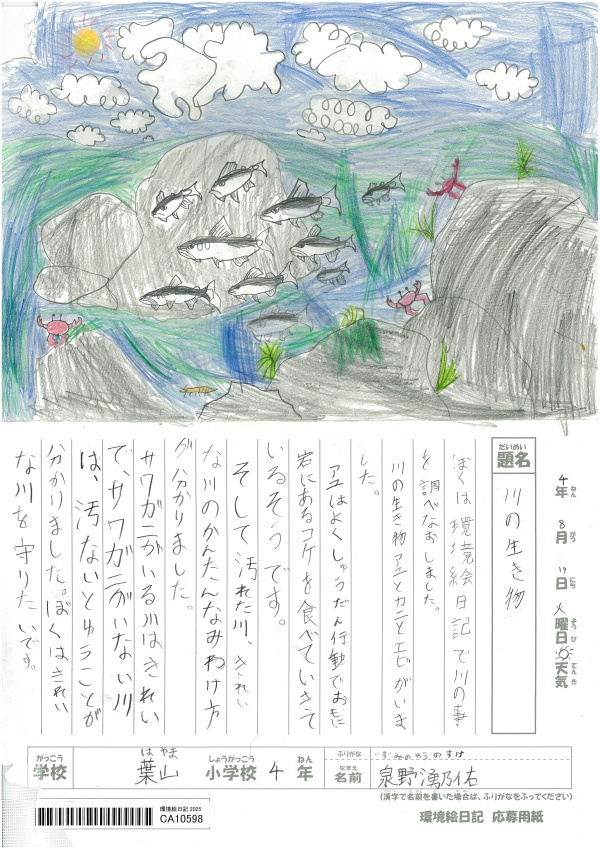 4年 8月 19日 火曜日 天気
ねん がつ にち ようび てんき
だいめい
題名
川の生き物
ぼくは環境絵日記で川の事
を調べなおしました。
川の生き物アユとカニとエビがいま
した。
アユはよくしゅうだん行動でおもに
岩にあるコケを食べていきて
いるそうです。
そして汚れた川、きれい
な川のかんたんなみわけ方
が分かりました。
サワガニがいる川はきれい
で、サワガニがいない川
は、汚ないとゆうことが
分かりました。ぼくはきれい
な川を守りたいです。
がっこう はやま しょうがっこう ねん
学校 葉山 小学校 4 年
ふりがな いずみの ゆうのすけ
なまえ
名前 泉野湧乃佑
(漢字で名前を書いた場合は、ふりがなをふってください)
環境絵日記 2025
CA10598
環境絵日記 応募用紙